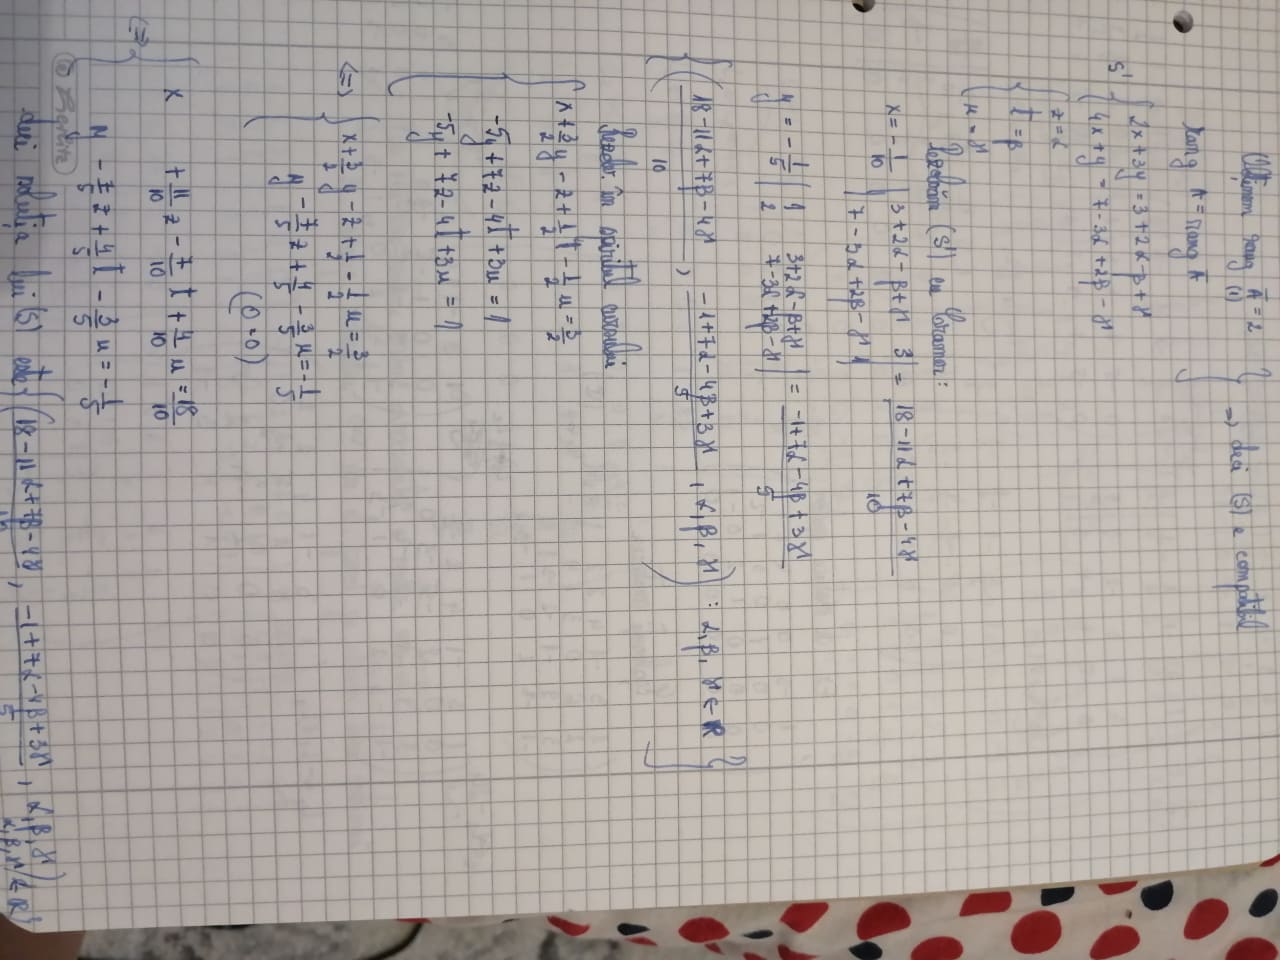 Obținem rang Ā = 2
(1)
rang A = rang Ā } => deci (S) e compatibil
S' { 2x + 3y = 3 + 2α - β + γ
4x + y = 7 - 3α + 2β - γ
{ z = α
t = β
u = γ
Rezolvăm (S') cu Cramer:
x = -1/10 | 3 + 2α - β + γ   3 | = (18 - 11α + 7β - 4γ)/10
| 7 - 3α + 2β - γ   1 |
y = -1/5 | 1   3 + 2α - β + γ | = (-1 + 7α - 4β + 3γ)/5
| 2   7 - 3α + 2β - γ |
{ ( (18 - 11α + 7β - 4γ)/10 , (-1 + 7α - 4β + 3γ)/5 , α, β, γ ) : α, β, γ ∈ R }
în spiritul
{ x + 3/2 y - z + 1/2 t - 1/2 u = 3/2
-5y + 7z - 4t + 3u = 1
-5y + 7z - 4t + 3u = 1
<=> { x + 3/2 y - z + 1/2 - 1/2 u = 3/2
y - 7/5 z + 4/5 - 3/5 u = -1/5
(0=0)
<=> { x + 11/10 z - 7/10 t + 4/10 u = 18/10
y - 7/5 z + 4/5 t - 3/5 u = -1/5
deci soluția lui (S) este { ( (18 - 11α + 7β - 4γ)/10 , (-1 + 7α - 4β + 3γ)/5 , α, β, γ ) α, β, γ ∈ R }